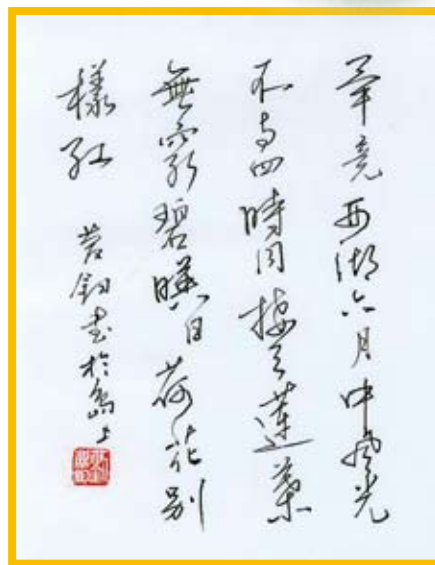 畢竟西湖六月中風光
不与四時同接天蓮葉
無窮碧暎日荷花別
樣紅 書於島上